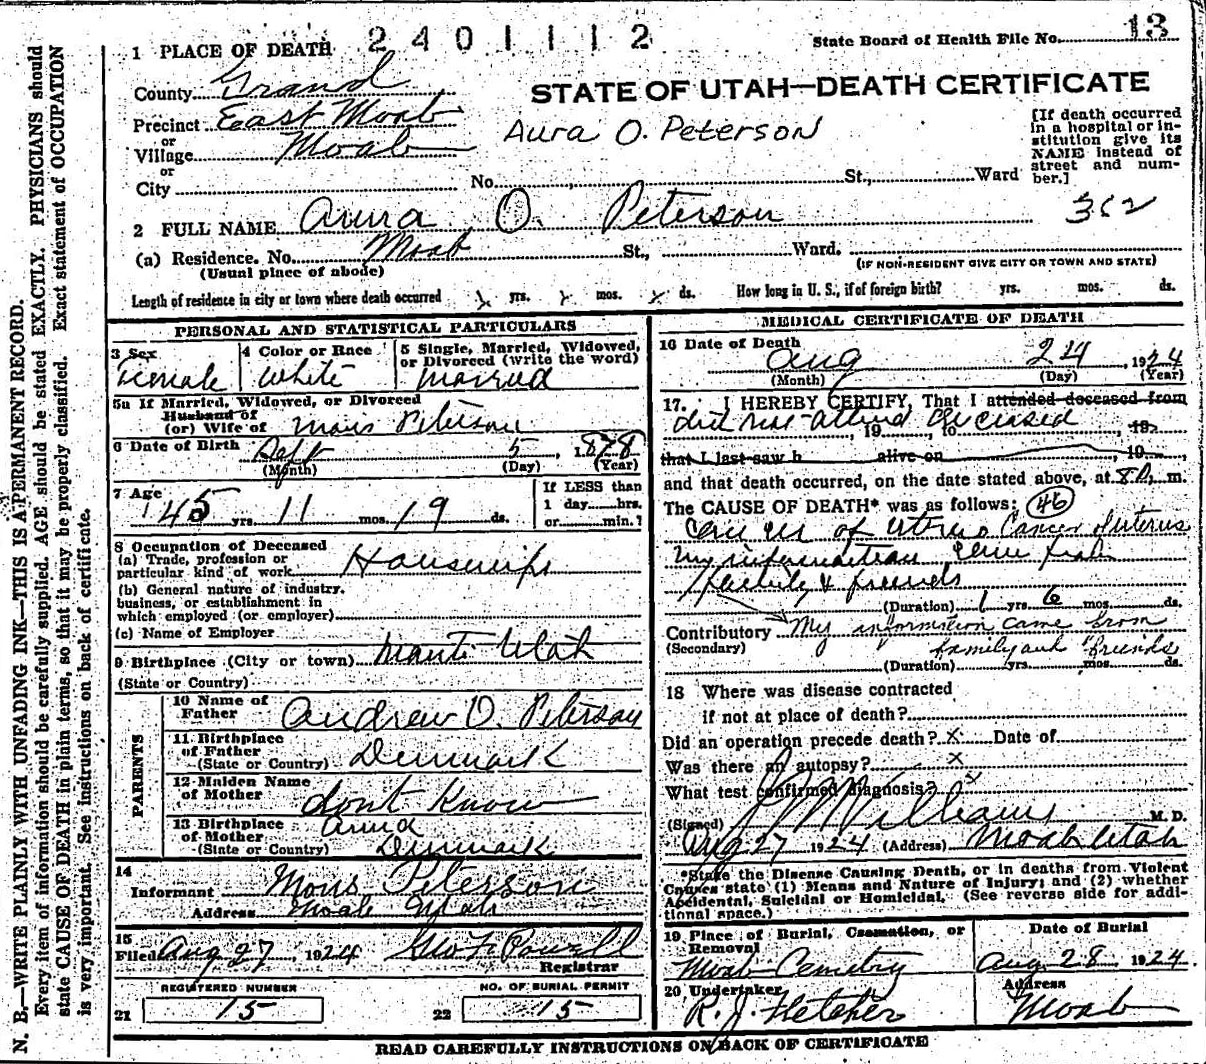 N. B.—WRITE PLAINLY WITH UNFADING INK—THIS IS A PERMANENT RECORD.
Every item of information should be carefully supplied. AGE should be stated EXACTLY. PHYSICIANS should
state CAUSE OF DEATH in plain terms, so that it may be properly classified. Exact statement of OCCUPATION
is very important. See instructions on back of certificate.
2401112
State Board of Health File No. 13
1 PLACE OF DEATH
County Grand
STATE OF UTAH—DEATH CERTIFICATE
Precinct East Moab
or
Village Moab
or
City
Aura O. Peterson
[If death occurred
in a hospital or in-
stitution give its
NAME instead of
street and num-
ber.]
No. St., Ward
2 FULL NAME Aura O. Peterson
352
(a) Residence. No. Moab St., Ward.
(Usual place of abode)
(IF NON-RESIDENT GIVE CITY OR TOWN AND STATE)
Length of residence in city or town where death occurred yrs. mos. ds. How long in U. S., if of foreign birth? yrs. mos. ds.
PERSONAL AND STATISTICAL PARTICULARS
3 Sex
Female
4 Color or Race
White
5 Single, Married, Widowed,
or Divorced (write the word)
Married
5a If Married, Widowed, or Divorced
Husband of
(or) Wife of Mons Peterson
6 Date of Birth Sept 5, 1878
(Month) (Day) (Year)
7 Age
45 yrs. 11 mos. 19 ds.
If LESS than
1 day hrs.
or min.?
8 Occupation of Deceased
(a) Trade, profession or
particular kind of work Housewife
(b) General nature of industry,
business, or establishment in
which employed (or employer)
(c) Name of Employer
9 Birthplace (City or town) Manti Utah
(State or Country)
PARENTS
10 Name of
Father Andrew O. Peterson
11 Birthplace
of Father
(State or Country) Denmark
12 Maiden Name
of Mother dont Know
13 Birthplace Anna
of Mother
(State or Country) Denmark
14
Informant Mons Peterson
Address Moab Utah
15
Filed Aug 27, 1924 Geo F. Powell
Registrar
REGISTERED NUMBER
21 15
NO. OF BURIAL PERMIT
22 15
MEDICAL CERTIFICATE OF DEATH
16 Date of Death
Aug 24, 1924
(Month) (Day) (Year)
17. I HEREBY CERTIFY, That I attended deceased from
did not attend deceased
, 19 , to , 19
that I last saw h alive on , 19 ,
and that death occurred, on the date stated above, at 8 P. m.
The CAUSE OF DEATH* was as follows: 46
Cancer of uterus Cancer of uterus
My information came from
family & friends
(Duration) 1 yrs. 6 mos. ds.
Contributory My information came from
(Secondary) family and friends
(Duration) yrs. mos. ds.
18 Where was disease contracted
if not at place of death?
Did an operation precede death? X Date of
Was there an autopsy? X
What test confirmed diagnosis? X
(Signed) J W Williams M. D.
Aug 27 1924 (Address) Moab Utah
*State the Disease Causing Death, or in deaths from Violent
Causes state (1) Means and Nature of Injury; and (2) whether
Accidental, Suicidal or Homicidal. (See reverse side for addi-
tional space.)
19 Place of Burial, Cremation, or
Removal
Moab Cemetry
Date of Burial
Aug 28 1924.
20 Undertaker
R. J. Fletcher
Address
Moab
READ CAREFULLY INSTRUCTIONS ON BACK OF CERTIFICATE